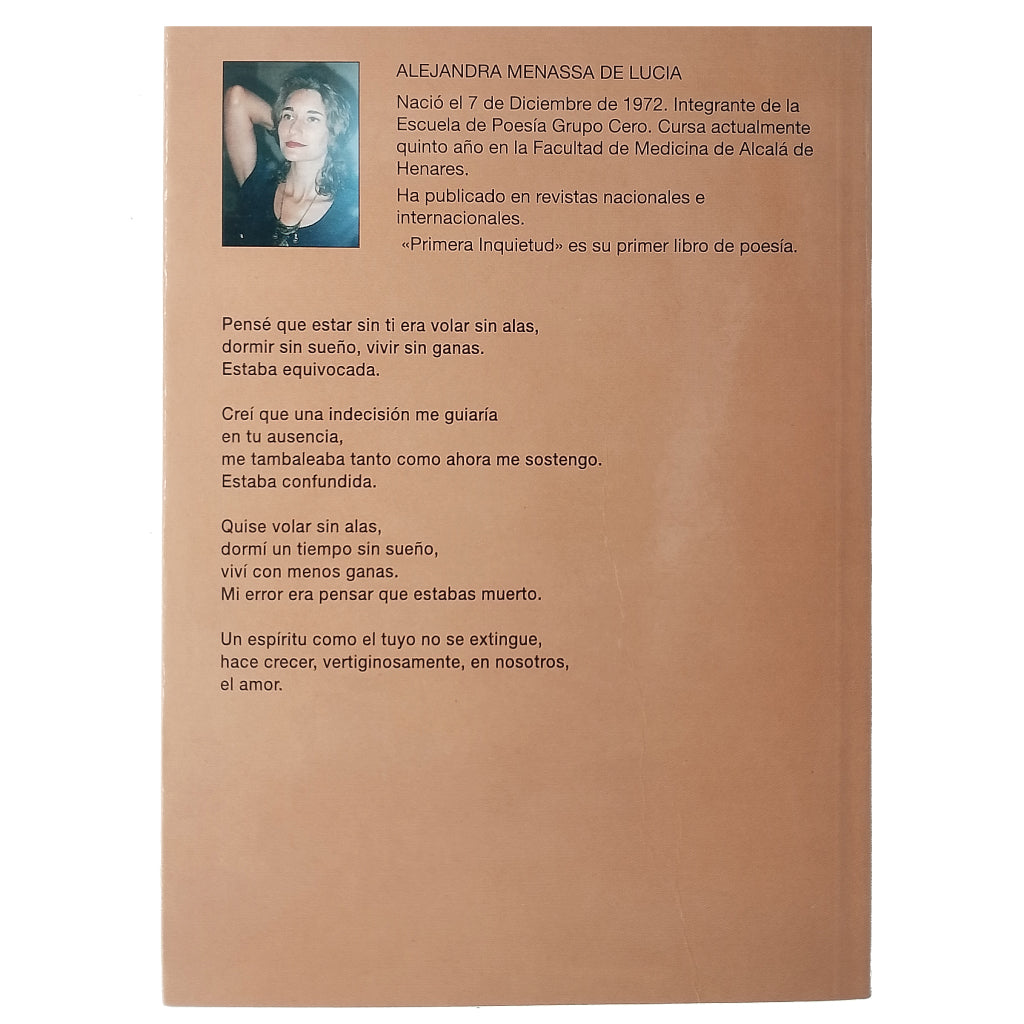 ALEJANDRA MENASSA DE LUCIA
Nació el 7 de Diciembre de 1972. Integrante de la
Escuela de Poesía Grupo Cero. Cursa actualmente
quinto año en la Facultad de Medicina de Alcalá de
Henares.
Ha publicado en revistas nacionales e
internacionales.
«Primera Inquietud» es su primer libro de poesía.
Pensé que estar sin ti era volar sin alas,
dormir sin sueño, vivir sin ganas.
Estaba equivocada.
Creí que una indecisión me guiaría
en tu ausencia,
me tambaleaba tanto como ahora me sostengo.
Estaba confundida.
Quise volar sin alas,
dormí un tiempo sin sueño,
viví con menos ganas.
Mi error era pensar que estabas muerto.
Un espíritu como el tuyo no se extingue,
hace crecer, vertiginosamente, en nosotros,
el amor.